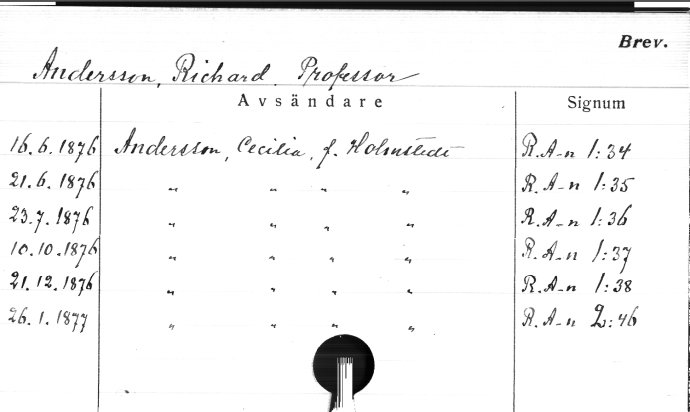 Brev.
Andersson, Richard. Professor
Avsändare Signum
16.6.1876 Andersson, Cecilia, f. Holmstedt R.A-n 1:34
21.6.1876 " " " " R.A-n 1:35
23.7.1876 " " " " R.A-n 1:36
10.10.1876 " " " " R.A-n 1:37
21.12.1876 " " " " R.A-n 1:38
26.1.1877 " " " " R.A-n 2:46